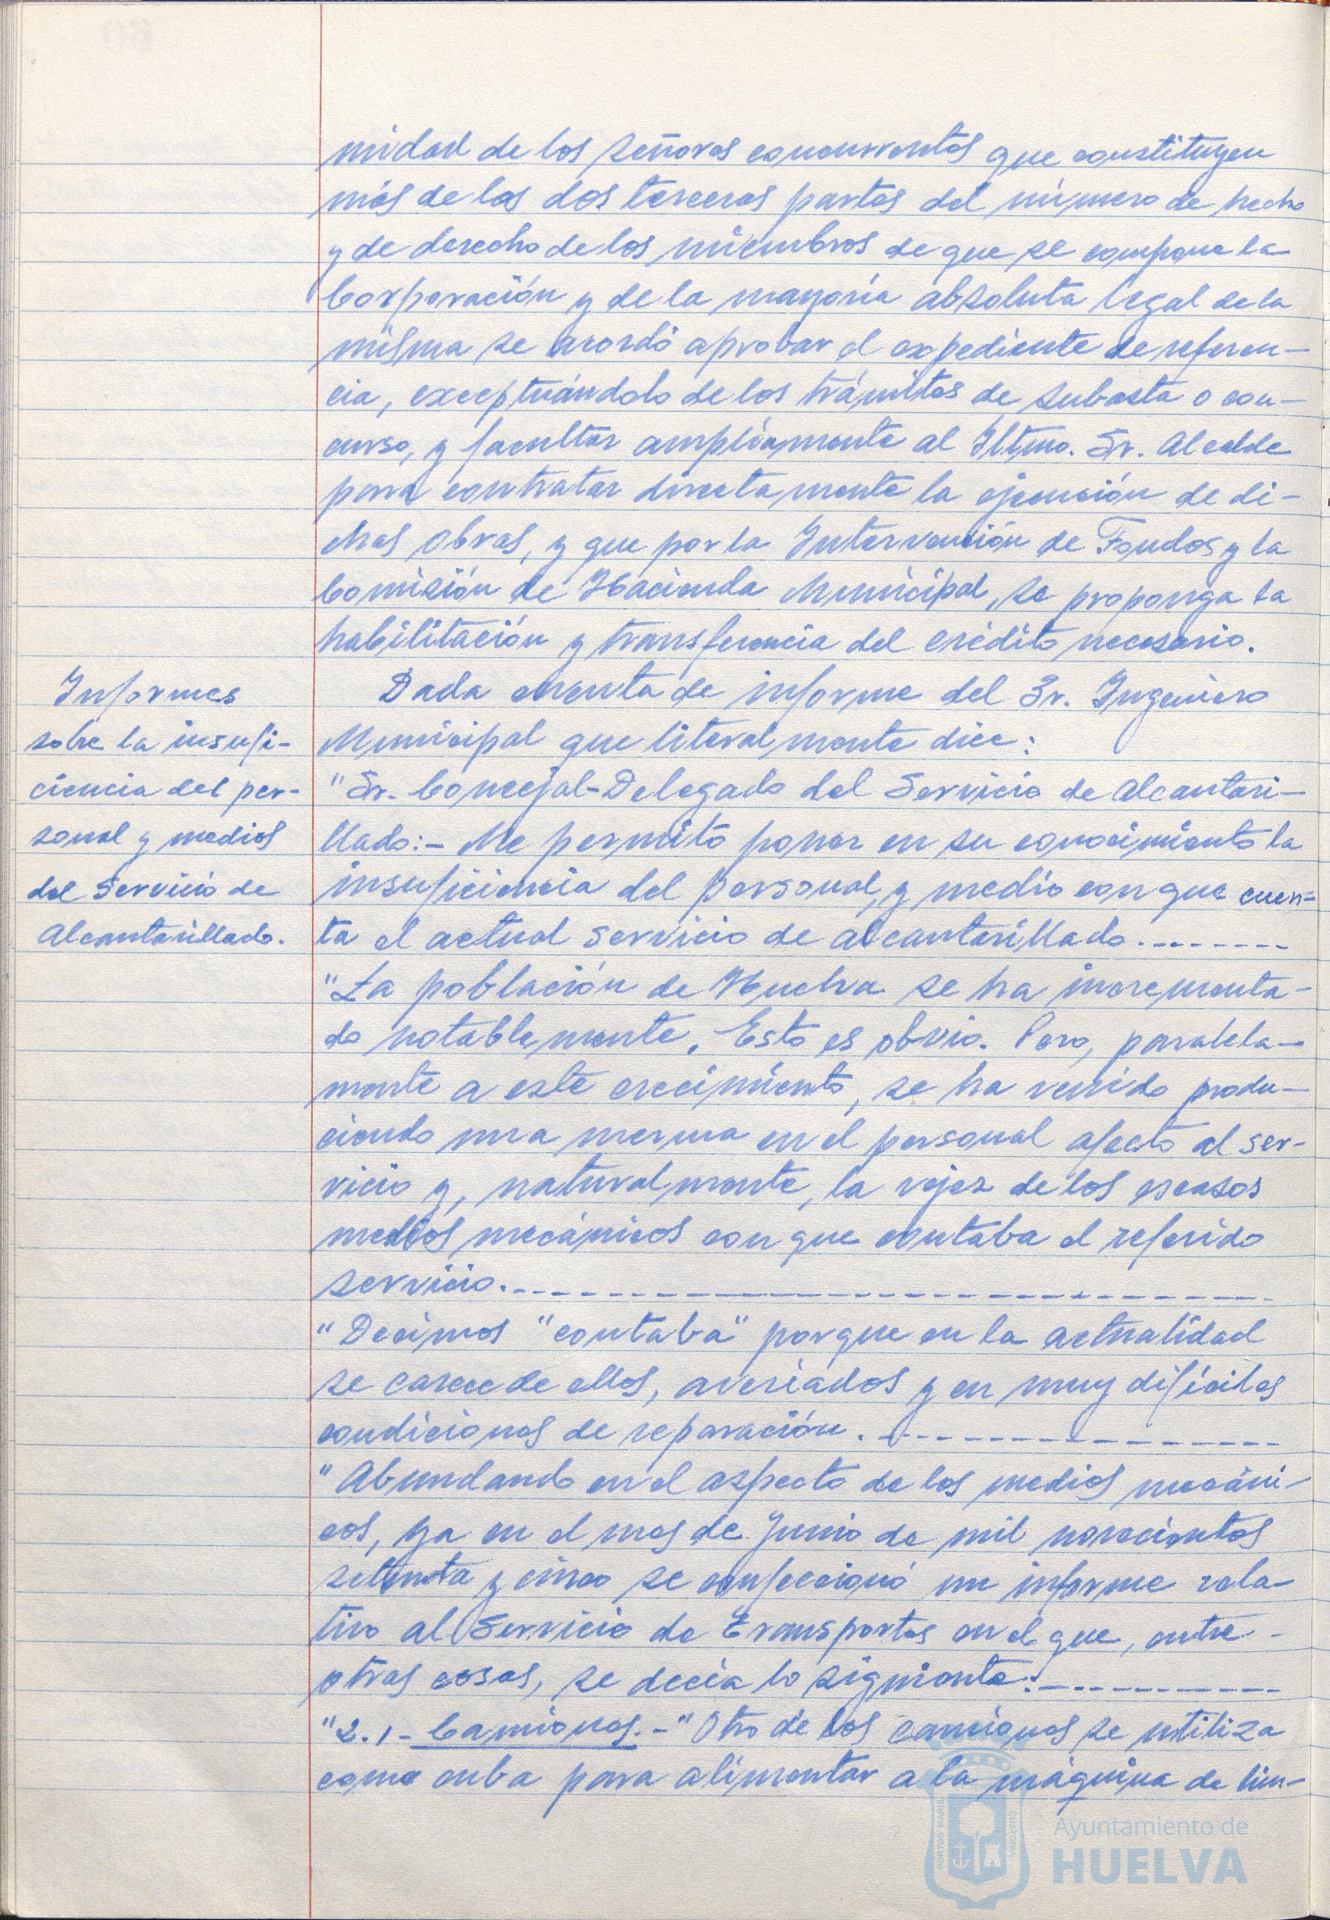 midad de los señores concurrentes que constituyen
más de las dos terceras partes del número de hecho
y de derecho de los miembros de que se compone la
Corporación y de la mayoría absoluta legal de la
misma se acordó aprobar el expediente de referen-
cia, exceptuándolo de los trámites de subasta o con-
curso, y facultar ampliamente al Iltmo. Sr. Alcalde
para contratar directamente la ejecución de di-
chas obras, y que por la Intervención de Fondos y la
Comisión de Hacienda Municipal, se proponga la
habilitación y transferencia del crédito necesario.
Informes
sobre la insufi-
ciencia del per-
sonal y medios
del Servicio de
Alcantarillado.
Dada cuenta de informe del Sr. Ingeniero
Municipal que literalmente dice:
"Sr. Concejal-Delegado del Servicio de Alcantari-
llado:- Me permito poner en su conocimiento la
insuficiencia del personal, y medio con que cuen-
ta el actual servicio de alcantarillado.--------
"La población de Huelva se ha incrementa-
do notablemente. Esto es obvio. Pero, paralela-
mente a este crecimiento, se ha venido produ-
ciendo una merma en el personal afecto al ser-
vicio y, naturalmente, la vejez de los escasos
medios mecánicos con que contaba el referido
servicio.------------------------------
"Decimos "contaba" porque en la actualidad
se carece de ellos, averiados y en muy difíciles
condiciones de reparación.-----------------
"Abundando en el aspecto de los medios mecáni-
cos, ya en el mes de Junio de mil novecientos
setenta y cinco se confeccionó un informe rela-
tivo al Servicio de Transportes en el que, entre-
otras cosas, se decía lo siguiente:-----------
"2.1- Camiones.- "Otro de los camiones se utiliza
como cuba para alimentar a la máquina de lim-
Ayuntamiento de
HUELVA